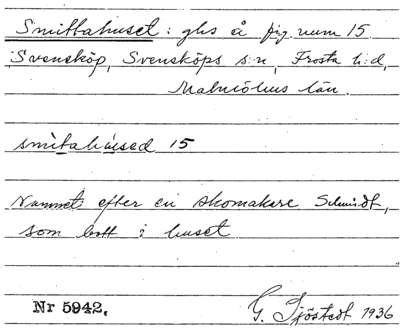 Smittahuset: ghs å fig. num 15
Svensköp, Svensköps s:n, Frosta h:d,
Malmöhus län.
smìtahúsed 15
Namnet efter en skomakare Schmidt,
som bott i huset
Nr 5942.
G. Sjöstedt 1936